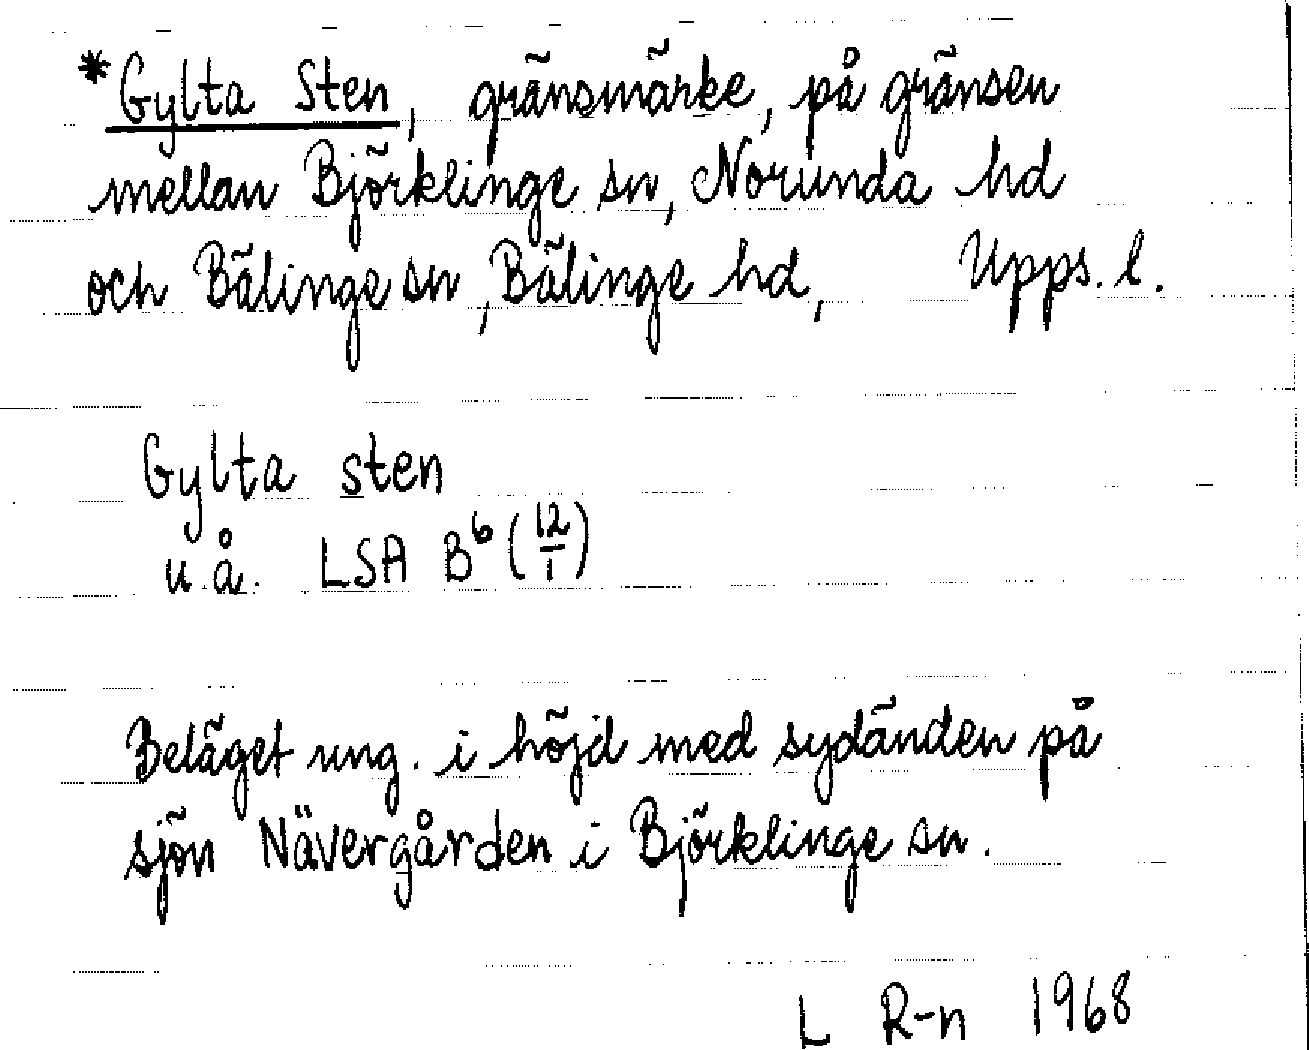 *Gylta Sten, gränsmärke, på gränsen
mellan Björklinge sn, Norunda hd
och Bälinge sn, Bälinge hd, Upps. l.
Gylta sten
u.å. LSA B⁶ (12/1)
Beläget ung. i höjd med sydänden på
sjön Nävergården i Björklinge sn.
L R-n 1968